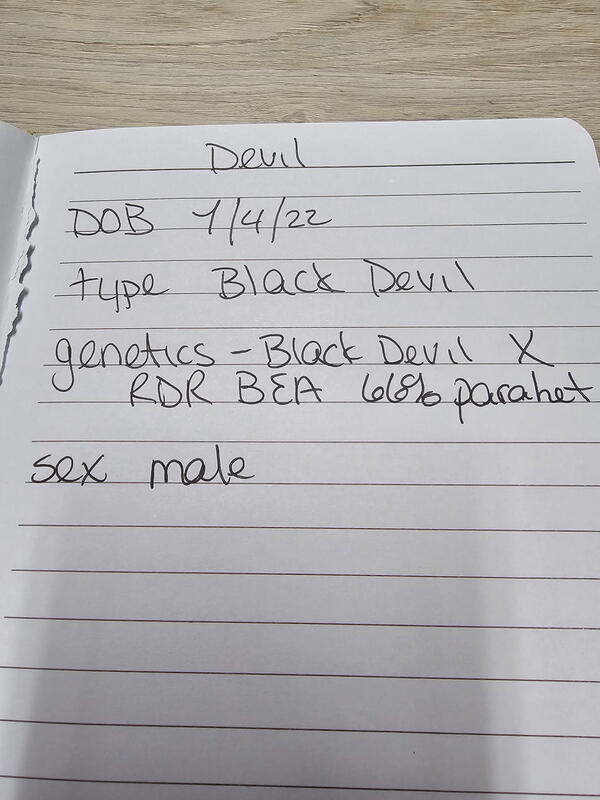 Devil
DOB 1/4/22
type Black Devil
genetics - Black Devil X
RDR BEA 66% parahet
sex male